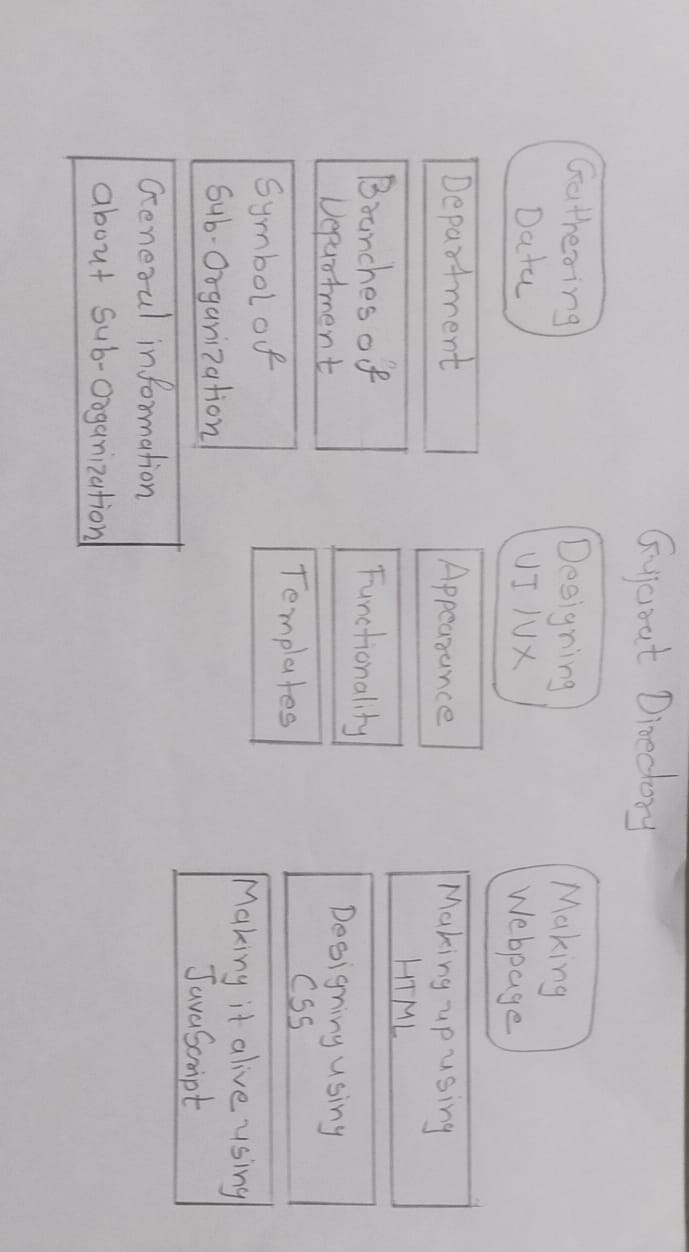 Gujarat Directory
Gathering
Data
Department
Branches of
Department
Symbol of
Sub-Organization
General information
about Sub-Organization
Designing
UI/UX
Appearance
Functionality
Templates
Making
Webpage
Making up using
HTML
Designing using
CSS
Making it alive using
JavaScript